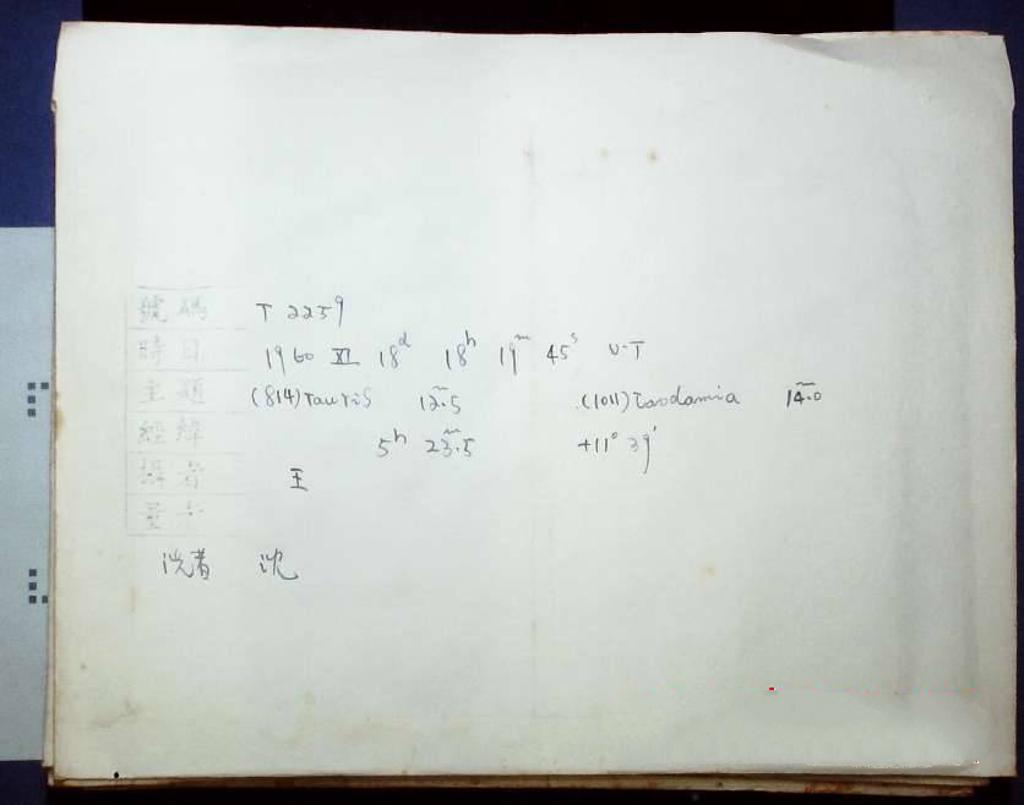 號碼 T 2259
時日 1960 XI 18d 18h 19m 45s U.T
主題 (814) Tauris 12m.5 (1011) Laodamia 14m.0
經緯 5h 23m.5 +11° 39′
攝者 王
洗者 沈